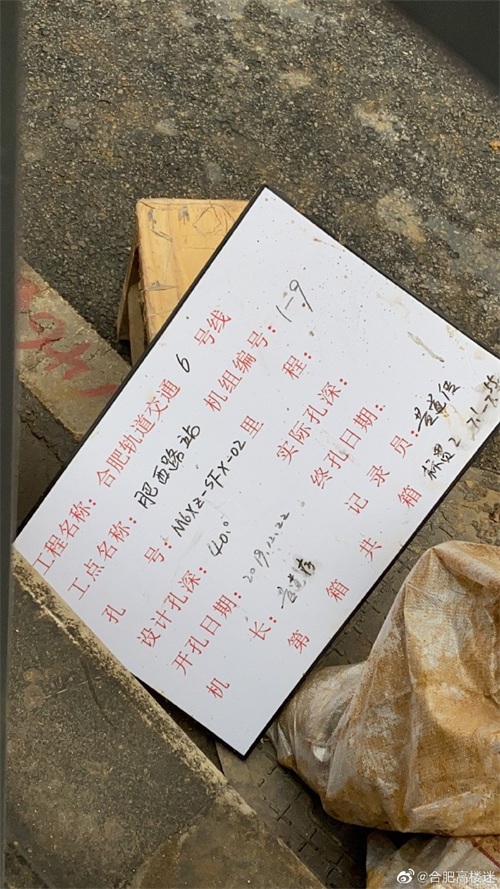 工程名称：合肥轨道交通 6 号线
工点名称：肥西路站 机组编号：1-9
孔 号：M6XZ-SFX-02 里 程：
设计孔深：40.0 实际孔深：
开孔日期：2019.12.22 终孔日期：
机 长： 记 录 员：
第 箱 共 箱 标贯2
@合肥高楼迷